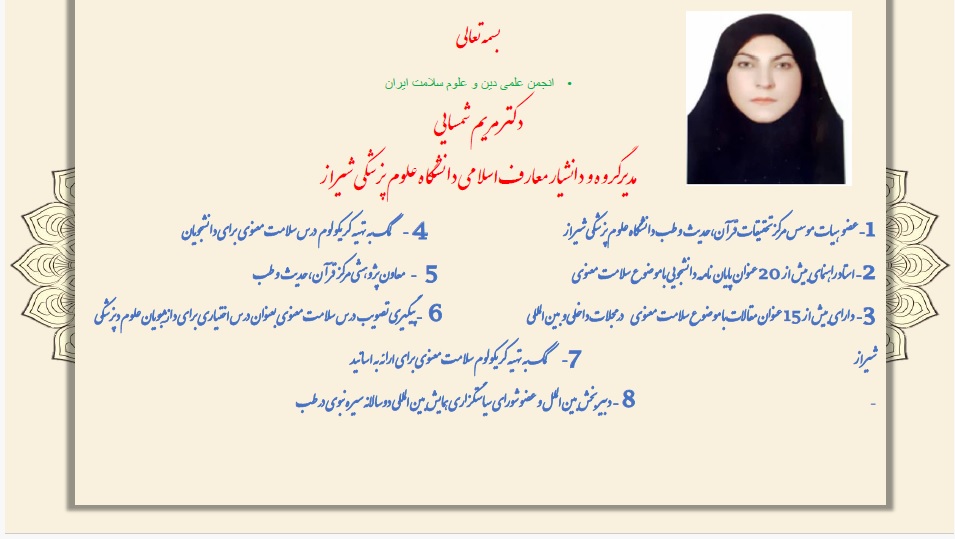 بسمه تعالی
• انجمن علمی دین و علوم سلامت ایران
دکتر مریم شمسایی
مدیرگروه و دانشیار معارف اسلامی دانشگاه علوم پزشکی شیراز
1- عضو هیات موسس مرکز تحقیقات قرآن، حدیث و طب دانشگاه علوم پزشکی شیراز
4 - کمک به تهیه کریکولوم درس سلامت معنوی برای دانشجویان
2- استاد راهنمای بیش از 20 عنوان پایان نامه دانشجویی با موضوع سلامت معنوی
5 - معاون پژوهشی مرکز قرآن، حدیث و طب
3- دارای بیش از 15 عنوان مقالات با موضوع سلامت معنوی در مجلات داخلی و بین المللی
6 - پیگیری تصویب درس سلامت معنوی بعنوان درس اختیاری برای دانشجویان علوم پزشکی
شیراز
7- کمک به تهیه کریکولوم سلامت معنوی برای ارائه به اساتید
-
8 - دبیر بخش بین الملل و عضو شورای سیاستگزاری همایش بین المللی دوسالانه سیره نبوی در طب